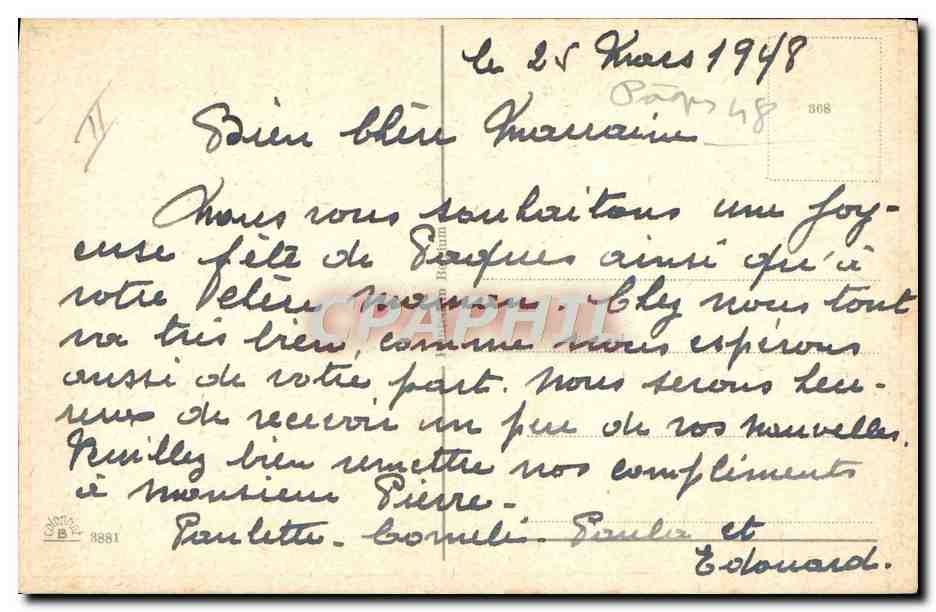 le 25 Mars 1948
Pâques 48
368
II
Bien Chère Marraine
Nous vous souhaitons une Joy-
euse fête de Pâques ainsi qu'à
votre Chère Maman. Chez nous tout
va très bien, comme nous espérons
aussi de votre part. Nous serons heu-
reux de recevoir un peu de vos nouvelles.
Veuillez bien remettre nos compliments
à Monsieur Pierre -
Paulette - Cornelis - Paula et
Edouard.
Colorprint
B 3881
Belgium
CPAPHIL